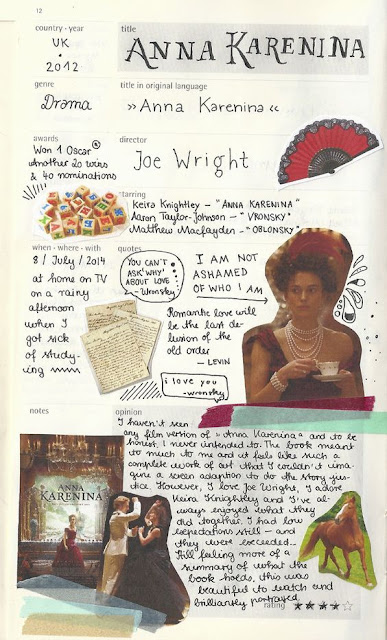 12
country - year
title
UK
•
2012
ANNA KARENINA
genre
title in original language
Drama
»Anna Karenina«
awards
director
Won 1 Oscar
Another 20 wins
& 40 nominations
Joe Wright
starring
Keira Knightley - "ANNA KARENINA"
Aaron Taylor-Johnson - "VRONSKY"
Matthew Macfayden - "OBLONSKY"
when - where - with
quotes
8 / July / 2014
at home on TV
on a rainy
afternoon
when I
got sick
of study-
ing
YOU CAN'T
ASK 'WHY'
ABOUT LOVE
- Wronsky
I AM NOT
ASHAMED
OF WHO I AM
Romantic love will
be the last de-
lusion of the
old order
- LEVIN
i love you
- wronsky
notes
opinion
I haven't seen
any film version of »Anna Karenina« and to be
honest, I never intended to. The book meant
to much to me and it feels like such a
complete work of art that I couldn't ima-
gine a screen adaption to do the story jus-
tice. However, I love Joe Wright, I adore
Keira Knightley and I've al-
ways enjoyed what they
did together. I had low
expectations still - and
they were exceeded.
Still feeling more of a
summary of what the
book holds, this was
beautiful to watch and
brilliantly portrayed.
ANNA
KARENINA
rating